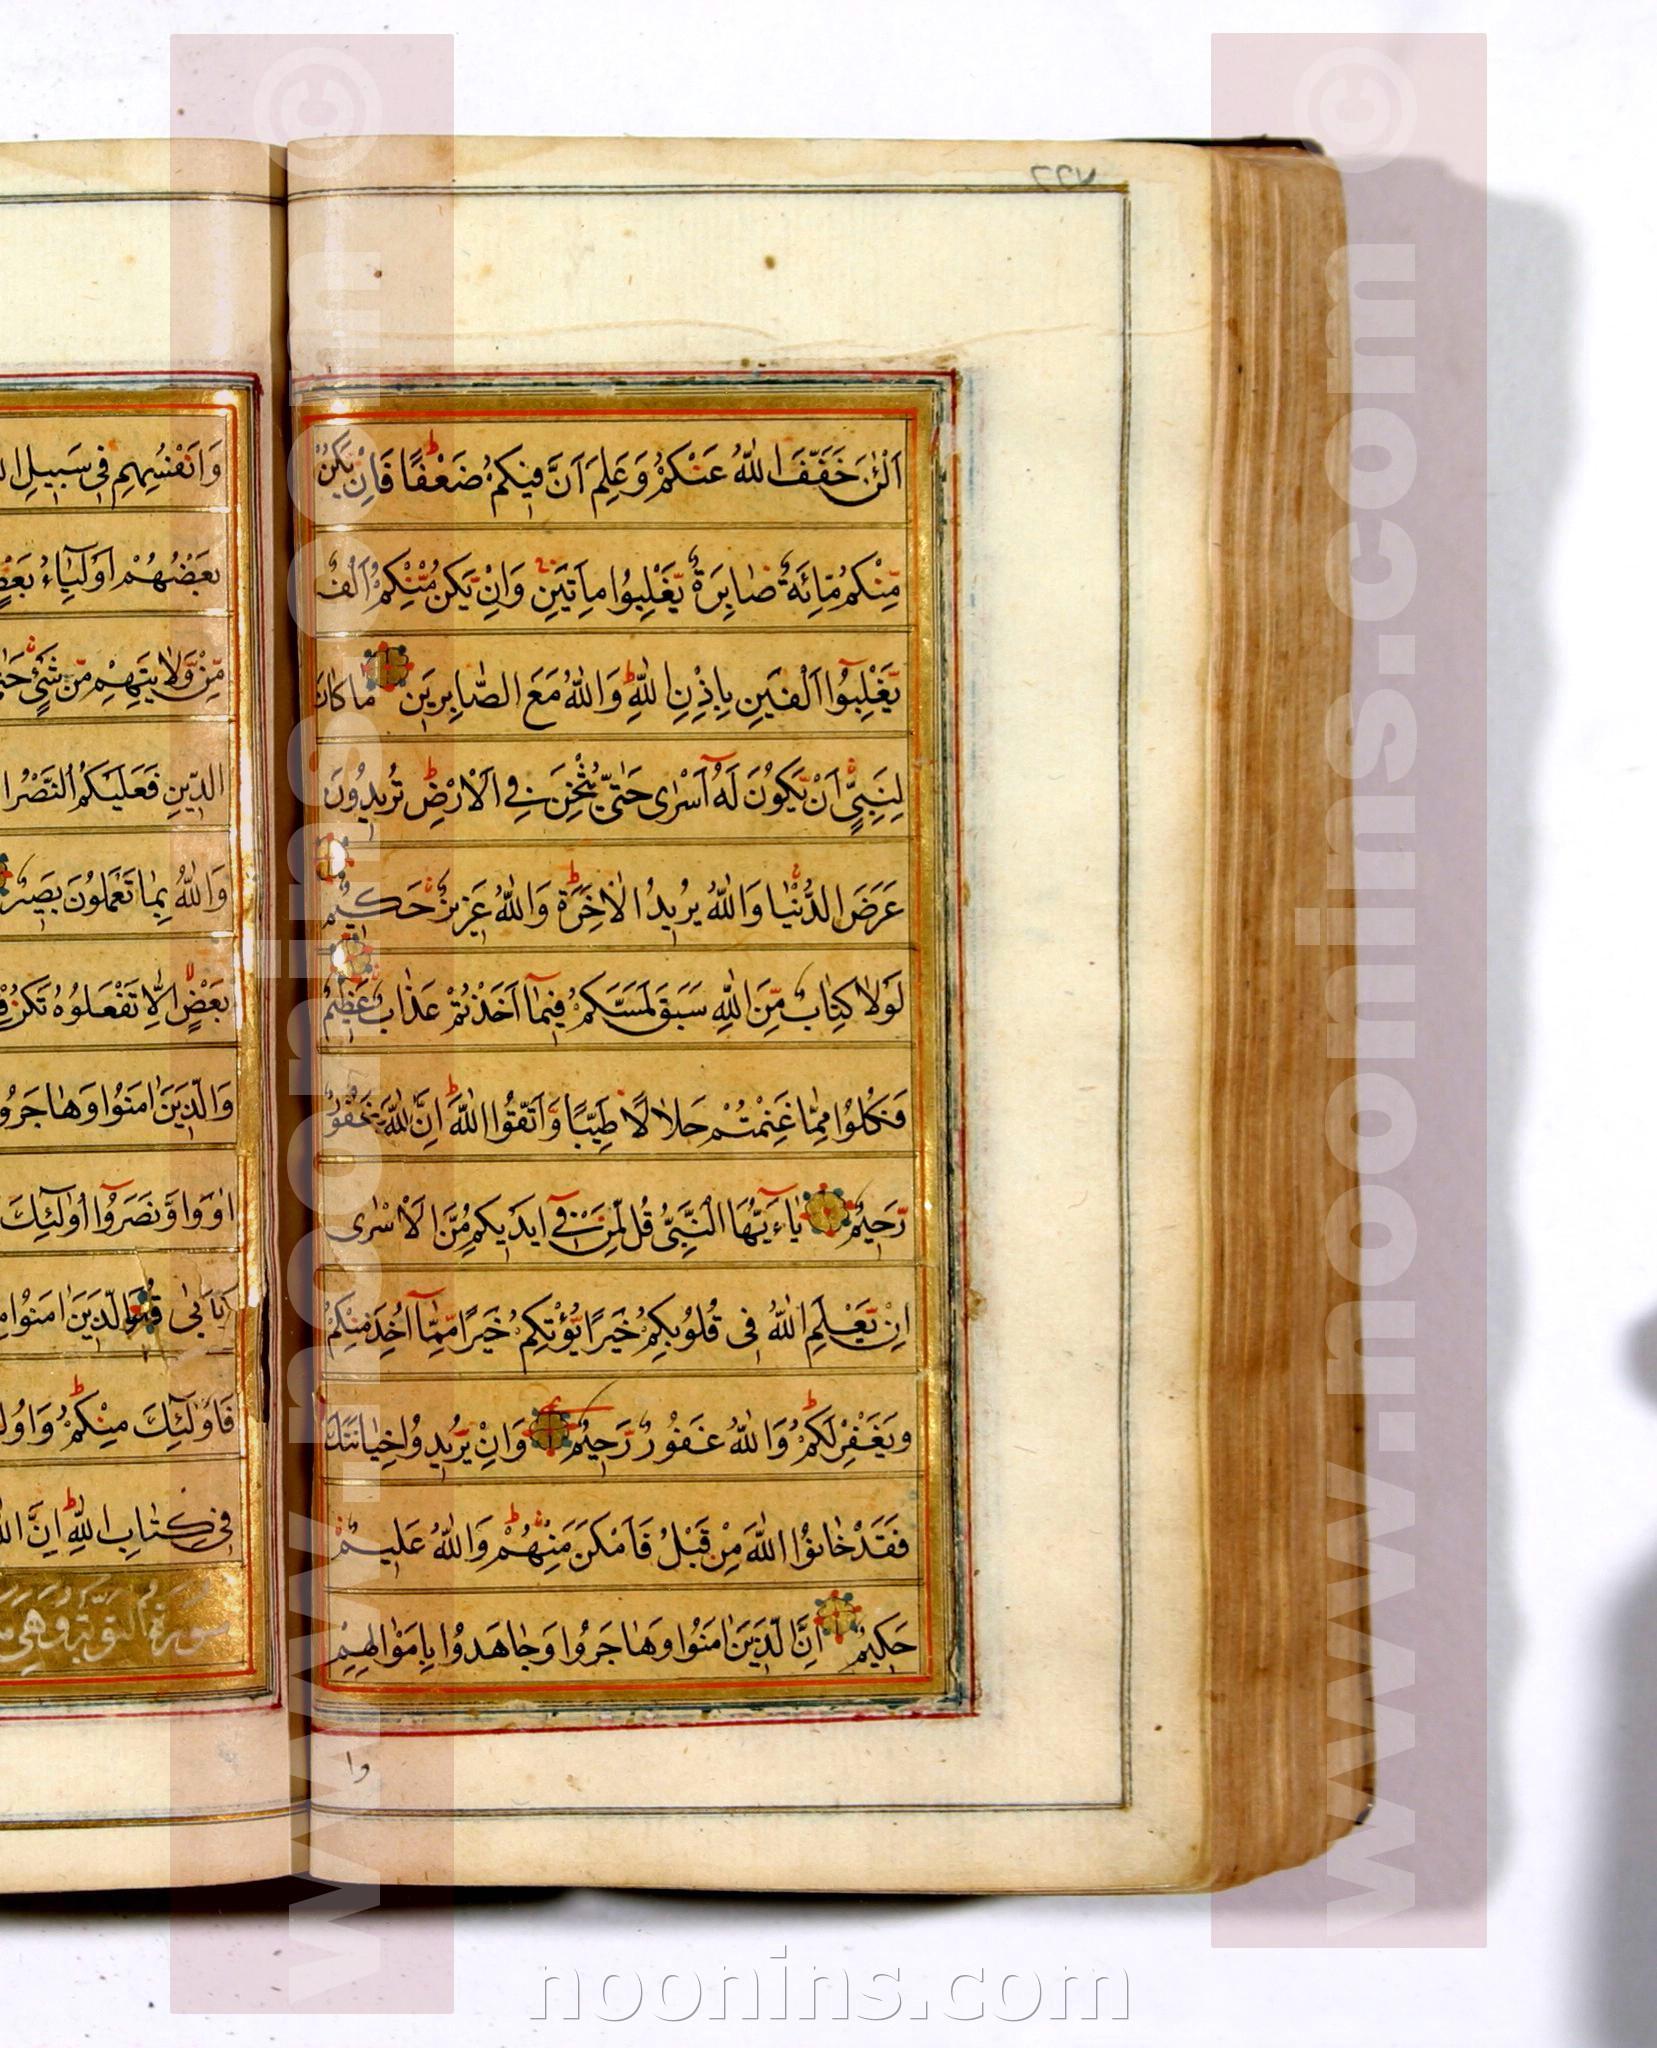 اَلْـٰٔنَ خَفَّفَ اللّٰهُ عَنْكُمْ وَعَلِمَ اَنَّ فِيكُمْ ضَعْفًا فَاِنْ يَكُنْ
مِّنْكُمْ مِّائَةٌ صٰابِرَةٌ يَّغْلِبُوا مِاَتَيْنِ وَاِنْ يَّكُنْ مِّنْكُمْ اَلْفٌ
يَّغْلِبُوٓا اَلْفَيْنِ بِاِذْنِ اللّٰهِ وَاللّٰهُ مَعَ الصّٰابِرِينَ مٰا كٰانَ
لِنَبِيٍّ اَنْ يَّكُونَ لَهُٓ اَسْرٰى حَتّٰى يُثْخِنَ فِى الْاَرْضِ تُرِيدُونَ
عَرَضَ الدُّنْيٰا وَاللّٰهُ يُرِيدُ الْاٰخِرَةَ وَاللّٰهُ عَزِيزٌ حَكِيمٌ
لَوْلٰا كِتٰابٌ مِّنَ اللّٰهِ سَبَقَ لَمَسَّكُمْ فِيمٰٓا اَخَذْتُمْ عَذٰابٌ عَظِيمٌ
فَكُلُوا مِمّٰا غَنِمْتُمْ حَلٰالًا طَيِّبًا وَّاتَّقُوا اللّٰهَ اِنَّ اللّٰهَ غَفُورٌ
رَّحِيمٌ يٰٓاءَيُّهَا النَّبِيُّ قُلْ لِّمَنْ فِىٓ اَيْدِيكُمْ مِّنَ الْاَسْرٰى
اِنْ يَّعْلَمِ اللّٰهُ فِى قُلُوبِكُمْ خَيْرًا يُّؤْتِكُمْ خَيْرًا مِّمّٰٓا اُخِذَ مِنْكُمْ
وَيَغْفِرْ لَكُمْ وَاللّٰهُ غَفُورٌ رَّحِيمٌ وَاِنْ يُّرِيدُوا خِيٰانَتَكَ
فَقَدْ خٰانُوا اللّٰهَ مِنْ قَبْلُ فَاَمْكَنَ مِنْهُمْ وَاللّٰهُ عَلِيمٌ
حَكِيمٌ اِنَّ الَّذِينَ اٰمَنُوا وَهٰاجَرُوا وَجٰاهَدُوا بِاَمْوٰالِهِمْ
وا
وَاَنْفُسِهِمْ فِى سَبِيلِ
بَعْضُهُمْ اَوْلِيٰٓاءُ بَعْضٍ
مِّنْ وَّلٰايَتِهِمْ مِّنْ شَىْءٍ
الدِّينِ فَعَلَيْكُمُ النَّصْرُ
وَاللّٰهُ بِمٰا تَعْمَلُونَ بَصِيرٌ
بَعْضٍ اِلّٰا تَفْعَلُوهُ تَكُنْ
وَالَّذِينَ اٰمَنُوا وَهٰاجَرُو
اٰوَوْا وَّنَصَرُوٓا اُولٰٓئِكَ
الَّذِينَ اٰمَنُوا
فَاُولٰٓئِكَ مِنْكُمْ وَاُولُ
فِى كِتٰابِ اللّٰهِ اِنَّ
سُورَةُ التَّوْبَةِ وَهِىَ
www.noonins.com ©
www.noonins.com ©
noonins.com